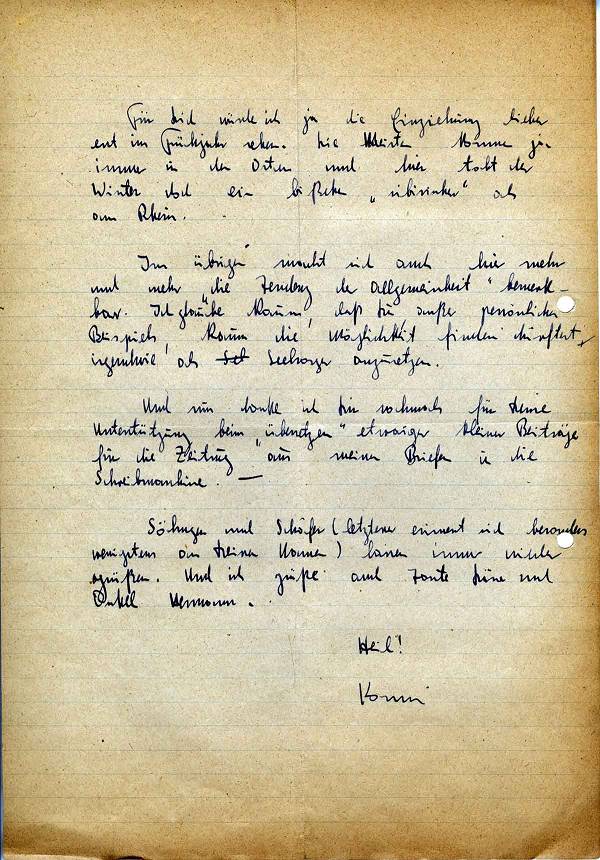 Für Dich würde ich ja die Einziehung lieber
erst im Frühjahr sehen. Die Meisten kommen ja
immer in den Osten und hier tobt der
Winter doch ein bißchen „sibirischer“ als
am Rhein.
Im übrigen macht sich auch hier mehr
und mehr „die Tendenz der Allgemeinheit“ bemerk-
bar. Ich glaube kaum, daß Du außer persönlichem
Beispiel, kaum die Möglichkeit finden dürftest,
irgendwie als Seelsorger anzusetzen.
Und nun danke ich Dir nochmals für Deine
Unterstützung beim „übersetzen“ etwaiger kleiner Beiträge
für die Zeitung aus meinen Briefen in die
Schreibmaschine. —
Söhngen und Schäfer (letzterer erinnert sich besonders
wenigstens an Deinen Namen) lassen immer wieder
grüßen. Und ich grüße auch Tante und
Onkel Hermann.
Heil!